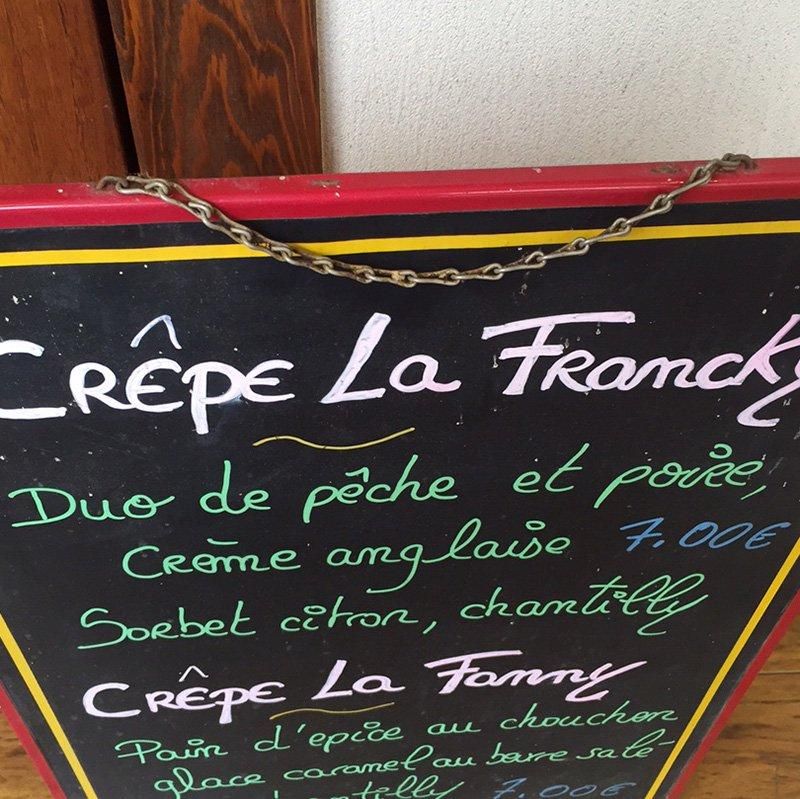 CRÊPE La FRancky
Duo de pêche et poire,
Crème anglaise 7.00€
Sorbet citron, chantilly
CRÊPE La Fanny
Pain d'epice au chouchon
glace caramel au beurre salé-
chantilly 7.00€